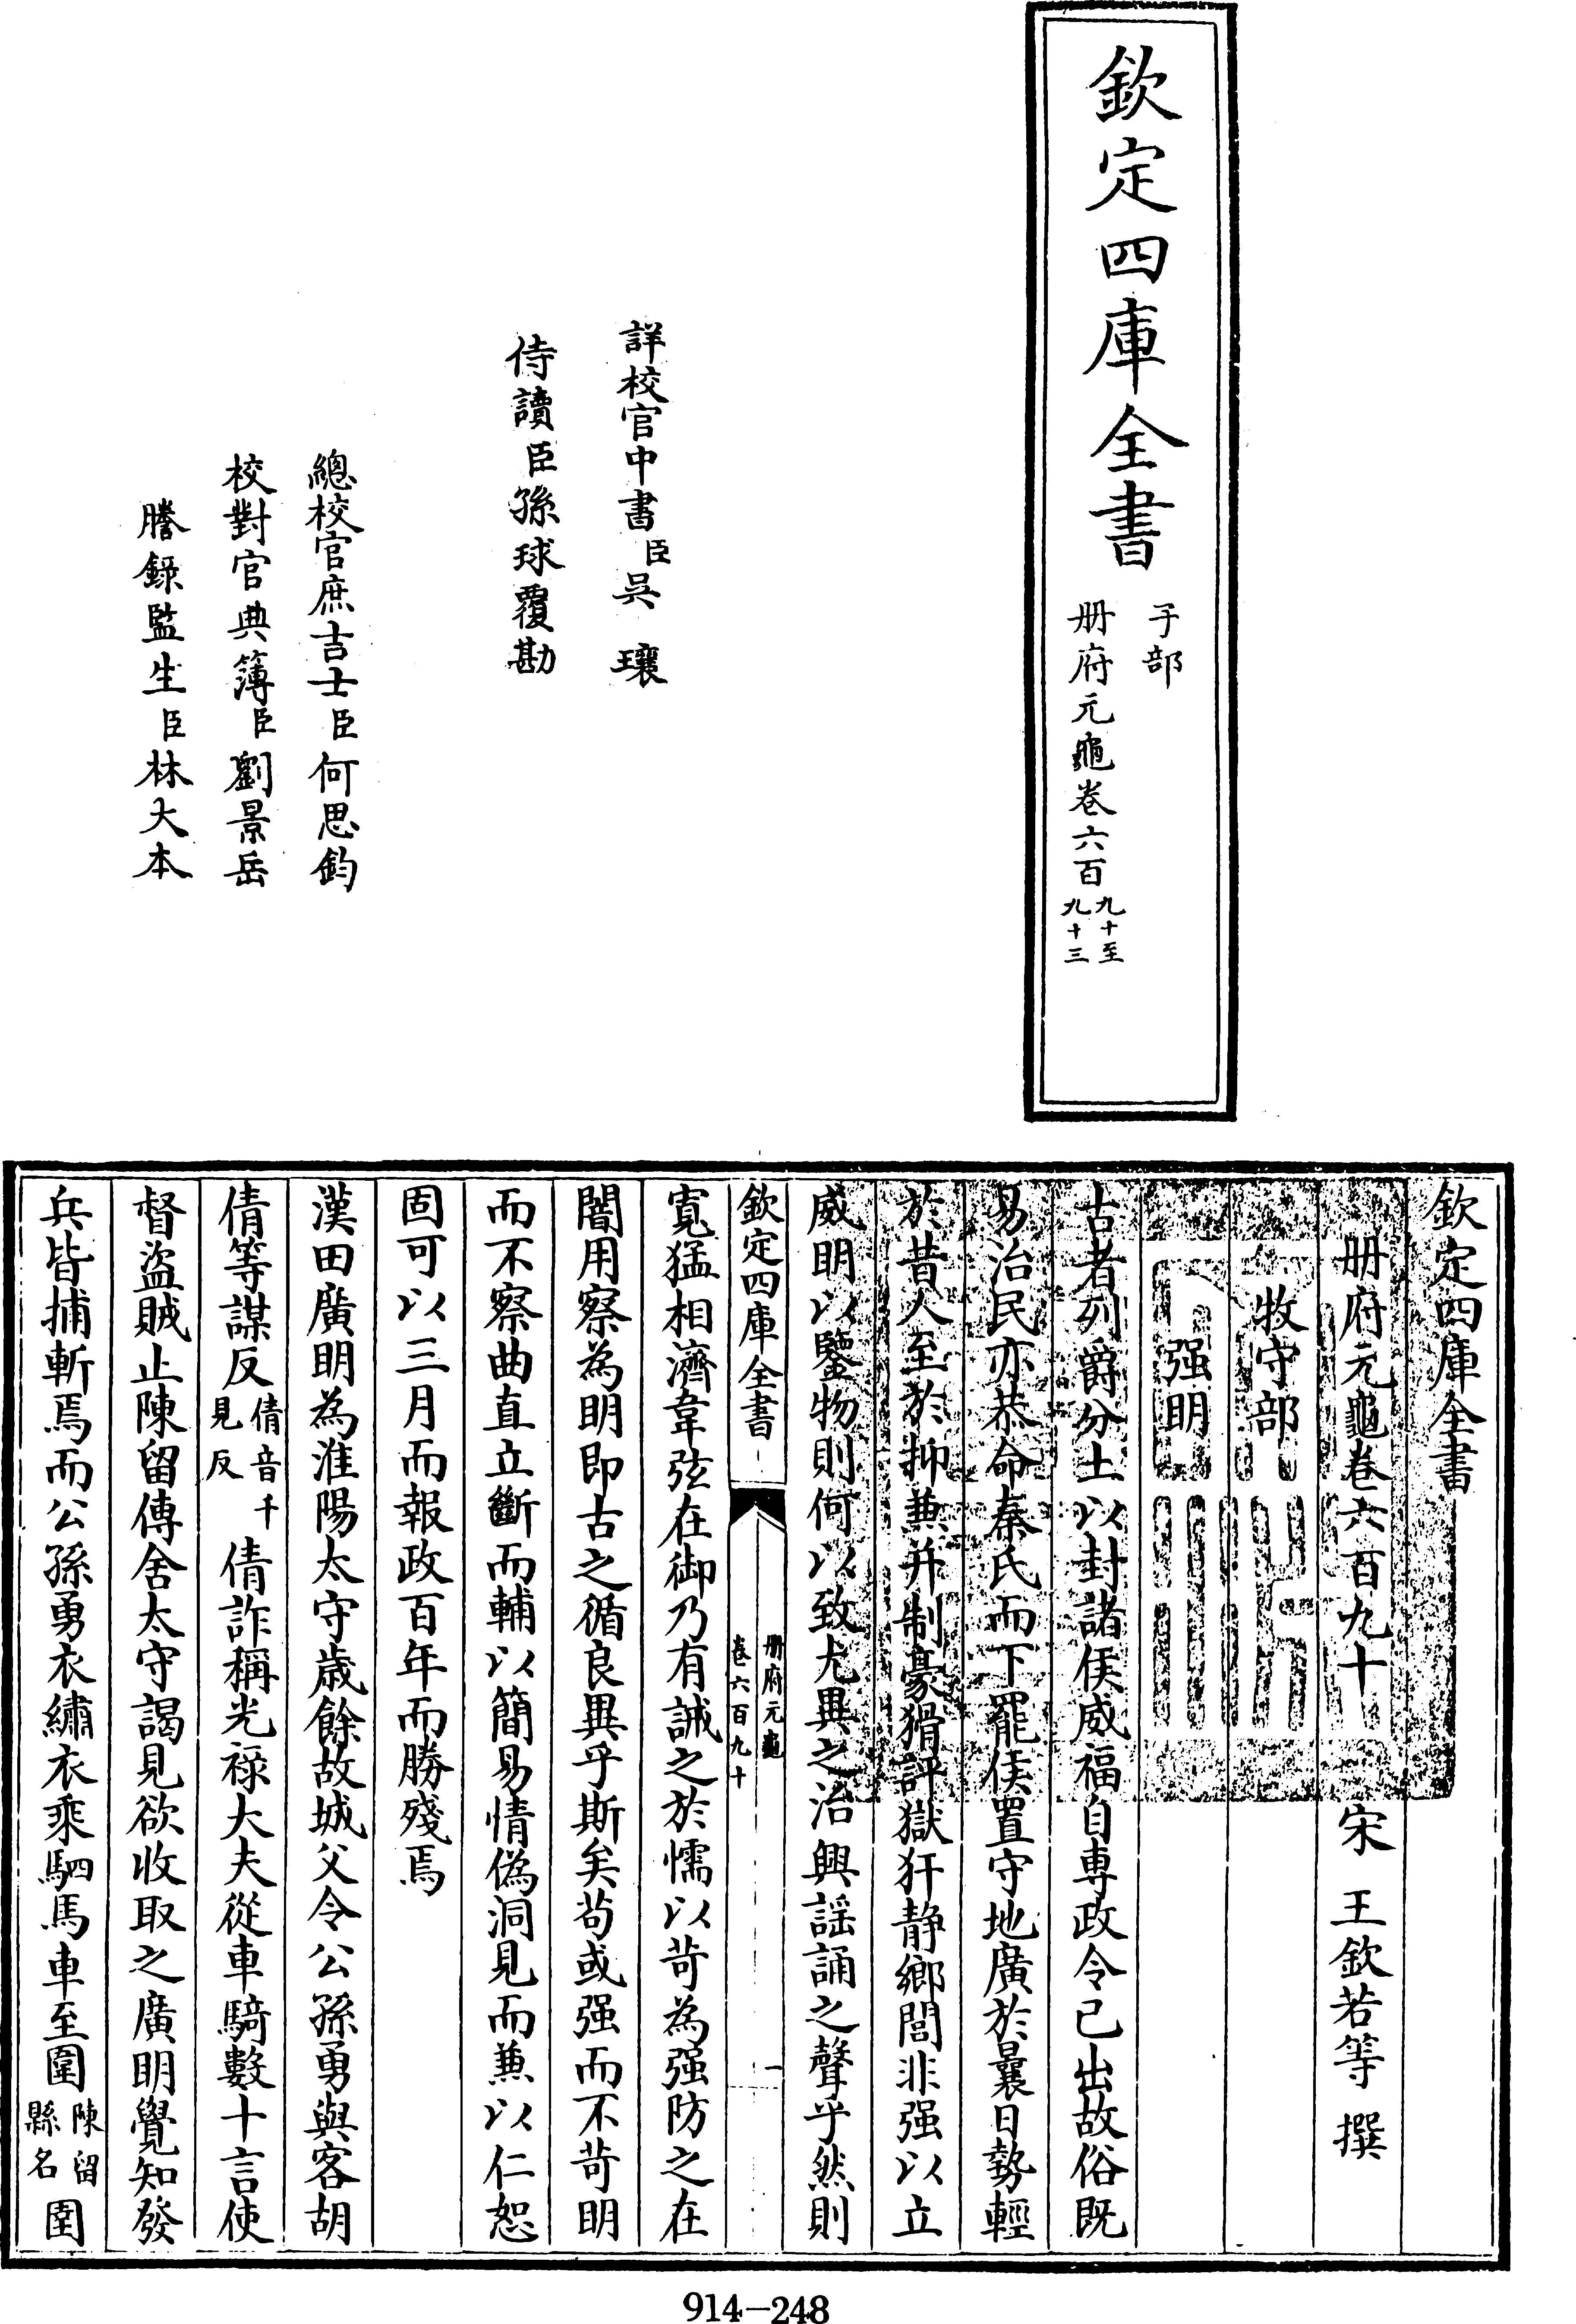 欽定四庫全書
子部
册府元龜卷六百九十至九十三
詳校官中書臣吳瓖
侍讀臣孫球覆勘
總校官庶吉士臣何思鈞
校對官典簿臣劉景岳
謄錄監生臣林大本
欽定四庫全書
册府元龜卷六百九十 宋 王欽若等 撰
牧守部
强明
古者列爵分土以封諸侯威福自專政令已出故俗既
易治民亦恭命秦氏而下罷侯置守地廣於曩日勢輕
於昔人至於抑兼并制豪猾評獄犴静鄉閭非强以立
威明以鑒物則何以致尤異之治興謡誦之聲乎然則
欽定四庫全書
册府元龜
卷六百九十
一
寛猛相濟韋弦在御乃有誡之於懦以苛為强防之在
闇用察為明即古之循良異乎斯矣茍或强而不苛明
而不察曲直立斷而輔以簡易情偽洞見而兼以仁恕
固可以三月而報政百年而勝殘焉
漢田廣明為淮陽太守歳餘故城父令公孫勇與客胡
倩等謀反倩音千見反倩詐稱光禄大夫從車騎數十言使
督盜賊止陳留傳舍太守謁見欲收取之廣明覺知發
兵皆捕斬焉而公孫勇衣繡衣乘駟馬車至圉陳留縣名圉
914-248